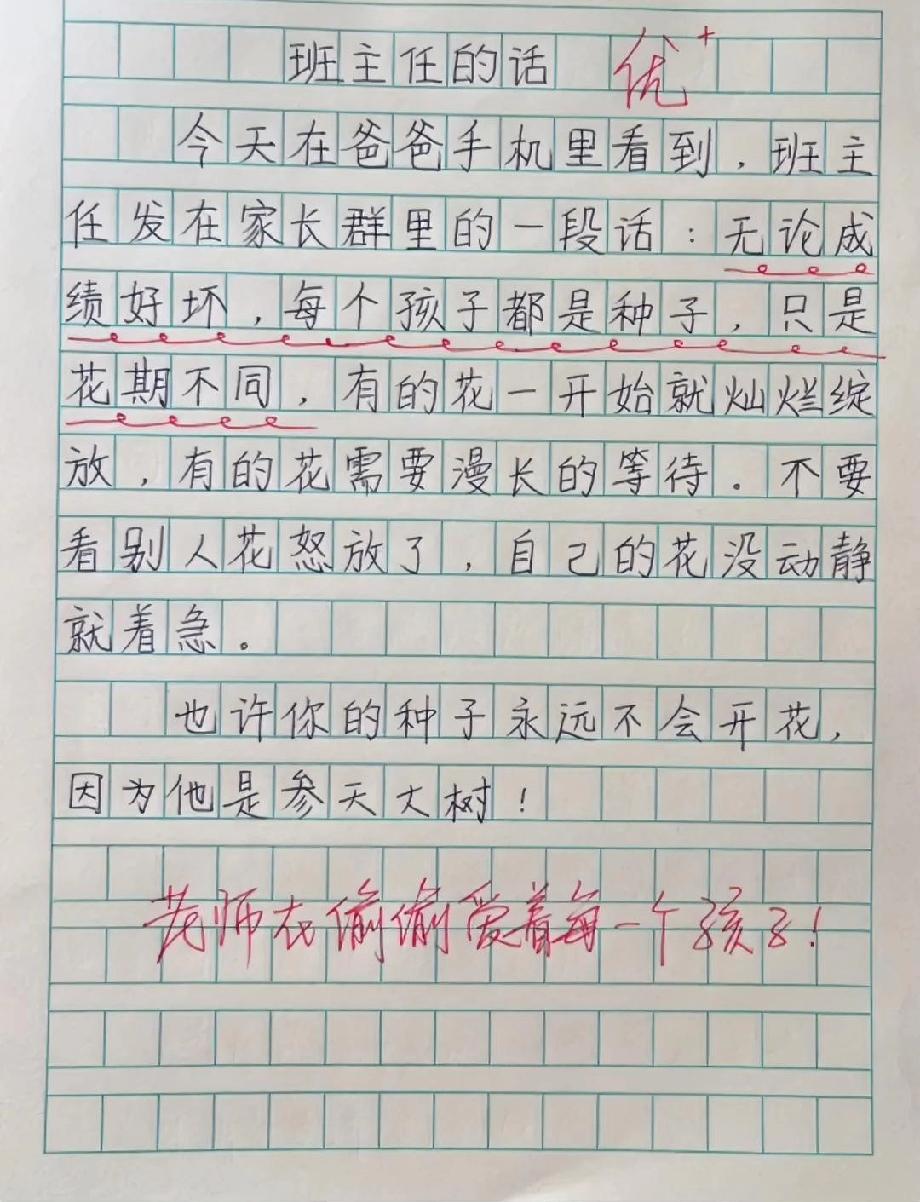 班主任的话 优+
今天在爸爸手机里看到，班主
任发在家长群里的一段话：无论成
绩好坏，每个孩子都是种子，只是
花期不同，有的花一开始就灿烂绽
放，有的花需要漫长的等待。不要
看别人花怒放了，自己的花没动静
就着急。
也许你的种子永远不会开花，
因为他是参天大树！
老师在偷偷爱着每一个孩子！